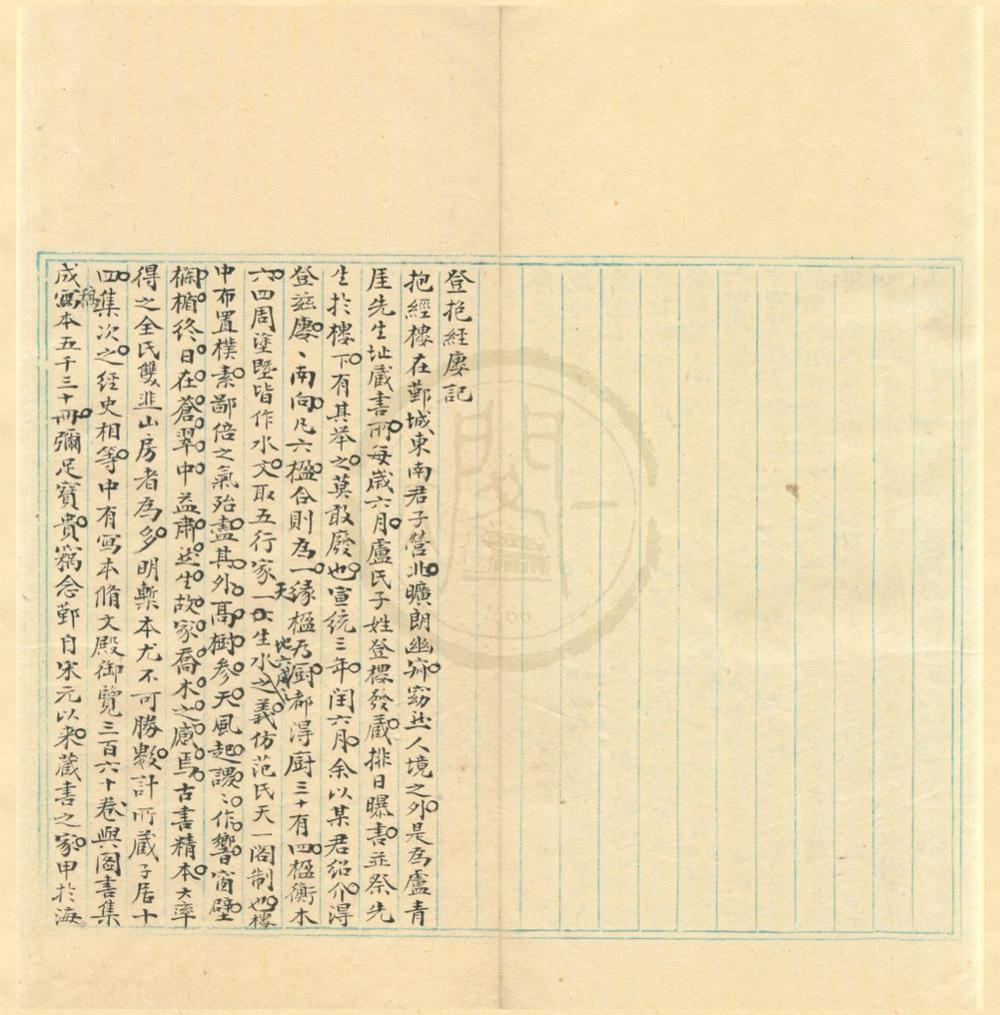 登抱經廔記
抱經樓在鄞城東南君子營北曠朗幽窈窈然人境之外是爲盧青
厓先生址藏書所每歲六月盧氏子姓登樓發藏排日曝書並祭先
生於樓下有其举之莫敢廢也宣统三年闰六月余以某君绍介得
登兹廔、南向凡六楹合則爲一缘楹乃厨都得厨三十有四楹衡木
六四周塗塈皆作水文取五行家天一生水地六成之之義仿范氏天一阁制也樓
中布置樸素鄙倍之氣殆盡其外高樹参天風起謖、作響窗壁
櫩楯终日在蒼翠中益肅然生故家喬木之感焉古書精本大率
得之全氏雙韭山房者爲多明槧本尤不可勝數計所藏子居十
四集次之經史相等中有寫本脩文殿御覽三百六十卷與圖書集
成寫稿本五千三十冊彌足寶貴竊念鄞自宋元以来藏書之家甲於海